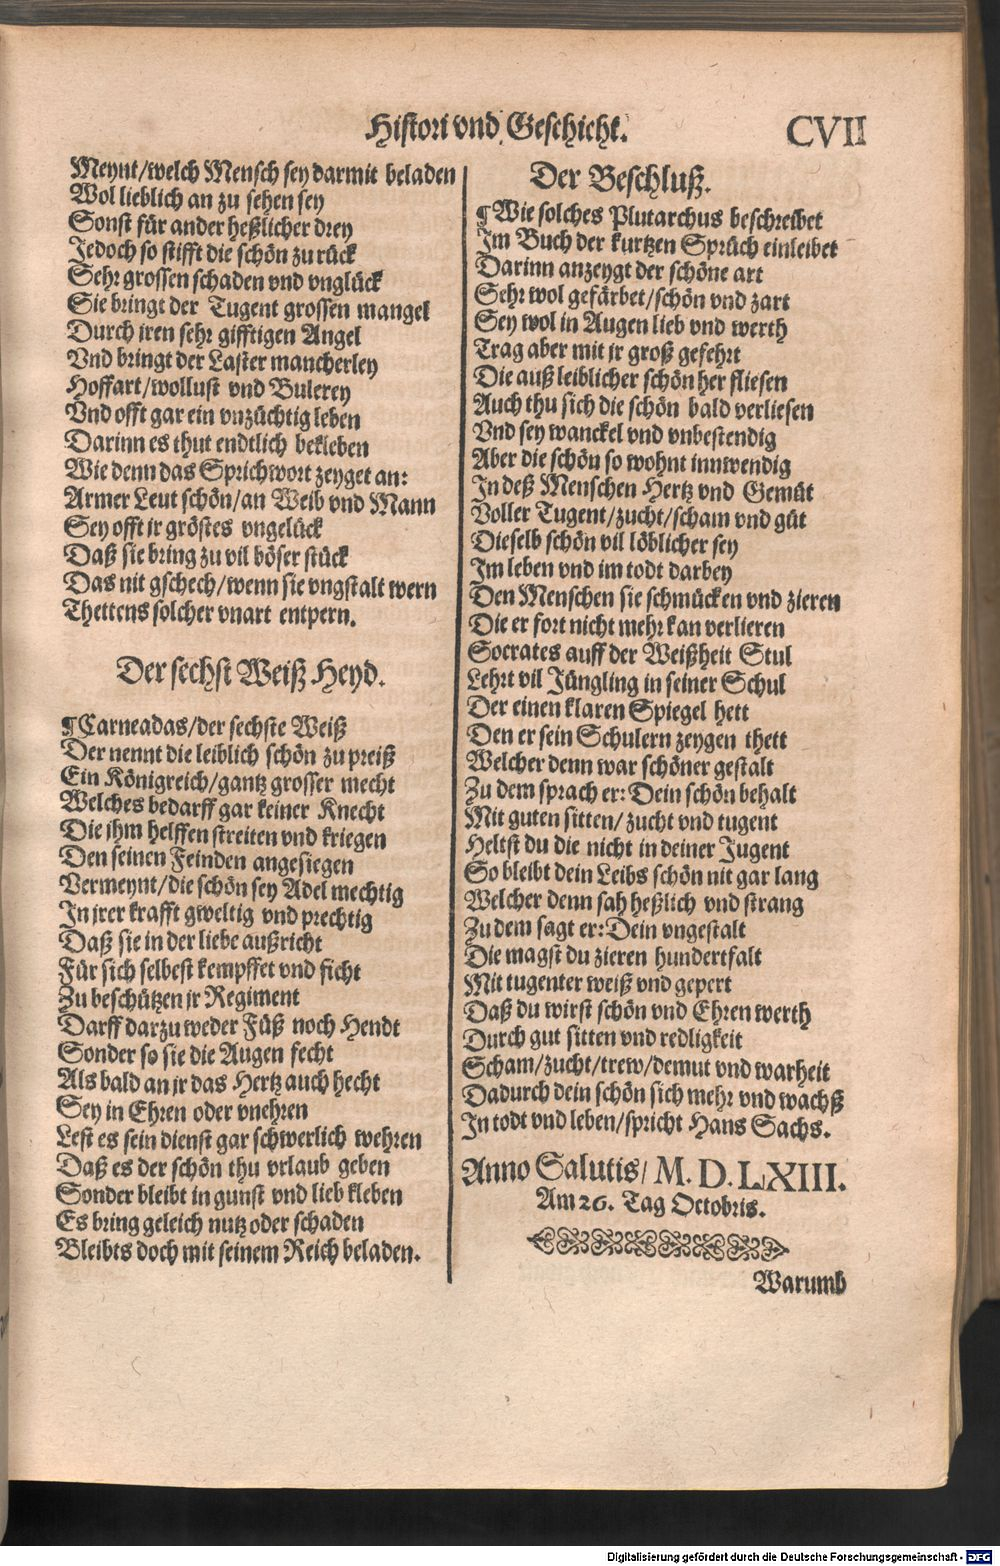 Histori vnd Geschicht.
CVII
Meynt/welch Mensch sey darmit beladen
Wol lieblich an zu sehen sey
Sonst für ander heßlicher drey
Jedoch so stifft die schön zu rück
Sehr grossen schaden vnd vnglück
Sie bringt der Tugent grossen mangel
Durch iren sehr gifftigen Angel
Vnd bringt der Laster mancherley
Hoffart/wollust vnd Bulerey
Vnd offt gar ein vnzüchtig leben
Darinn es thut endtlich bekleben
Wie denn das Sprichwort zeyget an:
Armer Leut schön/an Weib vnd Mann
Sey offt ir gröstes vngelück
Daß sie bring zu vil böser stück
Das nit gschech/wenn sie vngstalt wern
Thettens solcher vnart entpern.
Der sechst Weiß Heyd.
¶Carneadas/der sechste Weiß
Der nennt die leiblich schön zu preiß
Ein Königreich/gantz grosser mecht
Welches bedarff gar keiner Knecht
Die jhm helffen streiten vnd kriegen
Den seinen Feinden angesiegen
Vermeynt/die schön sey Adel mechtig
In jrer krafft gweltig vnd prechtig
Daß sie in der liebe außricht
Für sich selbest kempffet vnd ficht
Zu beschützen jr Regiment
Darff darzu weder Füß noch Hendt
Sonder so sie die Augen fecht
Als bald an jr das Hertz auch hecht
Sey in Ehren oder vnehren
Lest es sein dienst gar schwerlich wehren
Daß es der schön thu vrlaub geben
Sonder bleibt in gunst vnd lieb kleben
Es bring geleich nutz oder schaden
Bleibts doch mit seinem Reich beladen.
Der Beschluß.
¶Wie solches Plutarchus beschreibet
Im Buch der kurtzen Sprüch einleibet
Darinn anzeygt der schöne art
Sehr wol gefärbet/schön vnd zart
Sey wol in Augen lieb vnd werth
Trag aber mit jr groß gefehrt
Die auß leiblicher schön her fliesen
Auch thu sich die schön bald verliesen
Vnd sey wanckel vnd vnbestendig
Aber die schön so wohnt innwendig
In deß Menschen Hertz vnd Gemüt
Voller Tugent/zucht/scham vnd güt
Dieselb schön vil löblicher sey
Im leben vnd im todt darbey
Den Menschen sie schmücken vnd zieren
Die er fort nicht mehr kan verlieren
Socrates auff der Weißheit Stul
Lehrt vil Jüngling in seiner Schul
Der einen klaren Spiegel hett
Den er sein Schulern zeygen thett
Welcher denn war schöner gestalt
Zu dem sprach er: Dein schön behalt
Mit guten sitten/ zucht vnd tugent
Heltst du die nicht in deiner Jugent
So bleibt dein Leibs schön nit gar lang
Welcher denn sah heßlich vnd strang
Zu dem sagt er: Dein vngestalt
Die magst du zieren hundertfalt
Mit tugenter weiß vnd gepert
Daß du wirst schön vnd Ehren werth
Durch gut sitten vnd redligkeit
Scham/zucht/trew/demut vnd warheit
Dadurch dein schön sich mehr vnd wachß
In todt vnd leben/spricht Hans Sachs.
Anno Salutis/ M. D. LXIII.
Am 26. Tag Octobris.
Warumb
Digitalisierung gefördert durch die Deutsche Forschungsgemeinschaft - DFG